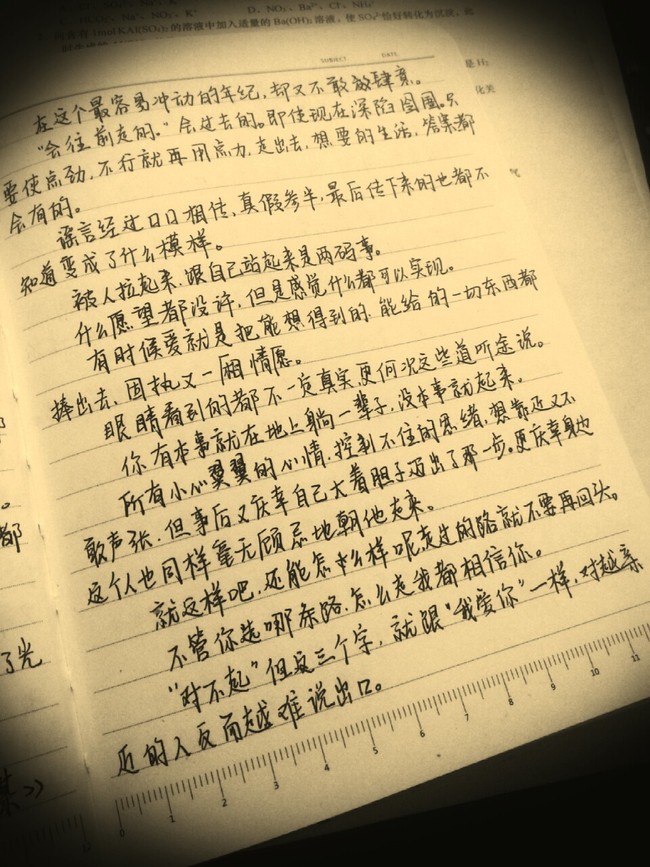 HCO₃⁻、Na⁺、NO₃⁻、K⁺
D. NO₃⁻、Ba²⁺、Cl⁻、NH₄⁺
1mol KAl(SO₄)₂的溶液中加入适量的Ba(OH)₂溶液，使SO₄²⁻恰好转化为沉淀，此
SUBJECT DATE
是H₂
化关
在这个最容易冲动的年纪，却又不敢放肆哀。
“会往前走的。”会过去的。即使现在深陷囹圄。只
要使点劲，不行就再用点力，走出去，想要的生活，答案都
会有的。
谣言经过口口相传，真假参半，最后传下来的也都不
知道变成了什么模样。
被人拉起来，跟自己站起来是两码事。
什么愿望都没许，但是感觉什么都可以实现。
有时候爱就是把能想得到的，能给的一切东西都
捧出去，固执又一厢情愿。
眼睛看到的都不一定真实，更何况这些道听途说。
你有本事就在地上躺一辈子，没本事就起来。
所有小心翼翼的心情，控制不住的思绪，想靠近又不
敢声张，但事后又庆幸自己大着胆子迈出了那一步。更庆幸身边
这个人也同样毫无顾忌地朝他走来。
就这样吧，还能怎么样呢，走过的路就不要再回头。
不管你选哪条路，怎么走我都相信你。
“对不起”但这三个字，就跟“我爱你”一样，对越亲
近的人反而越难说出口。
都
了光
0 1 2 3 4 5 6 7 8 9 10 11